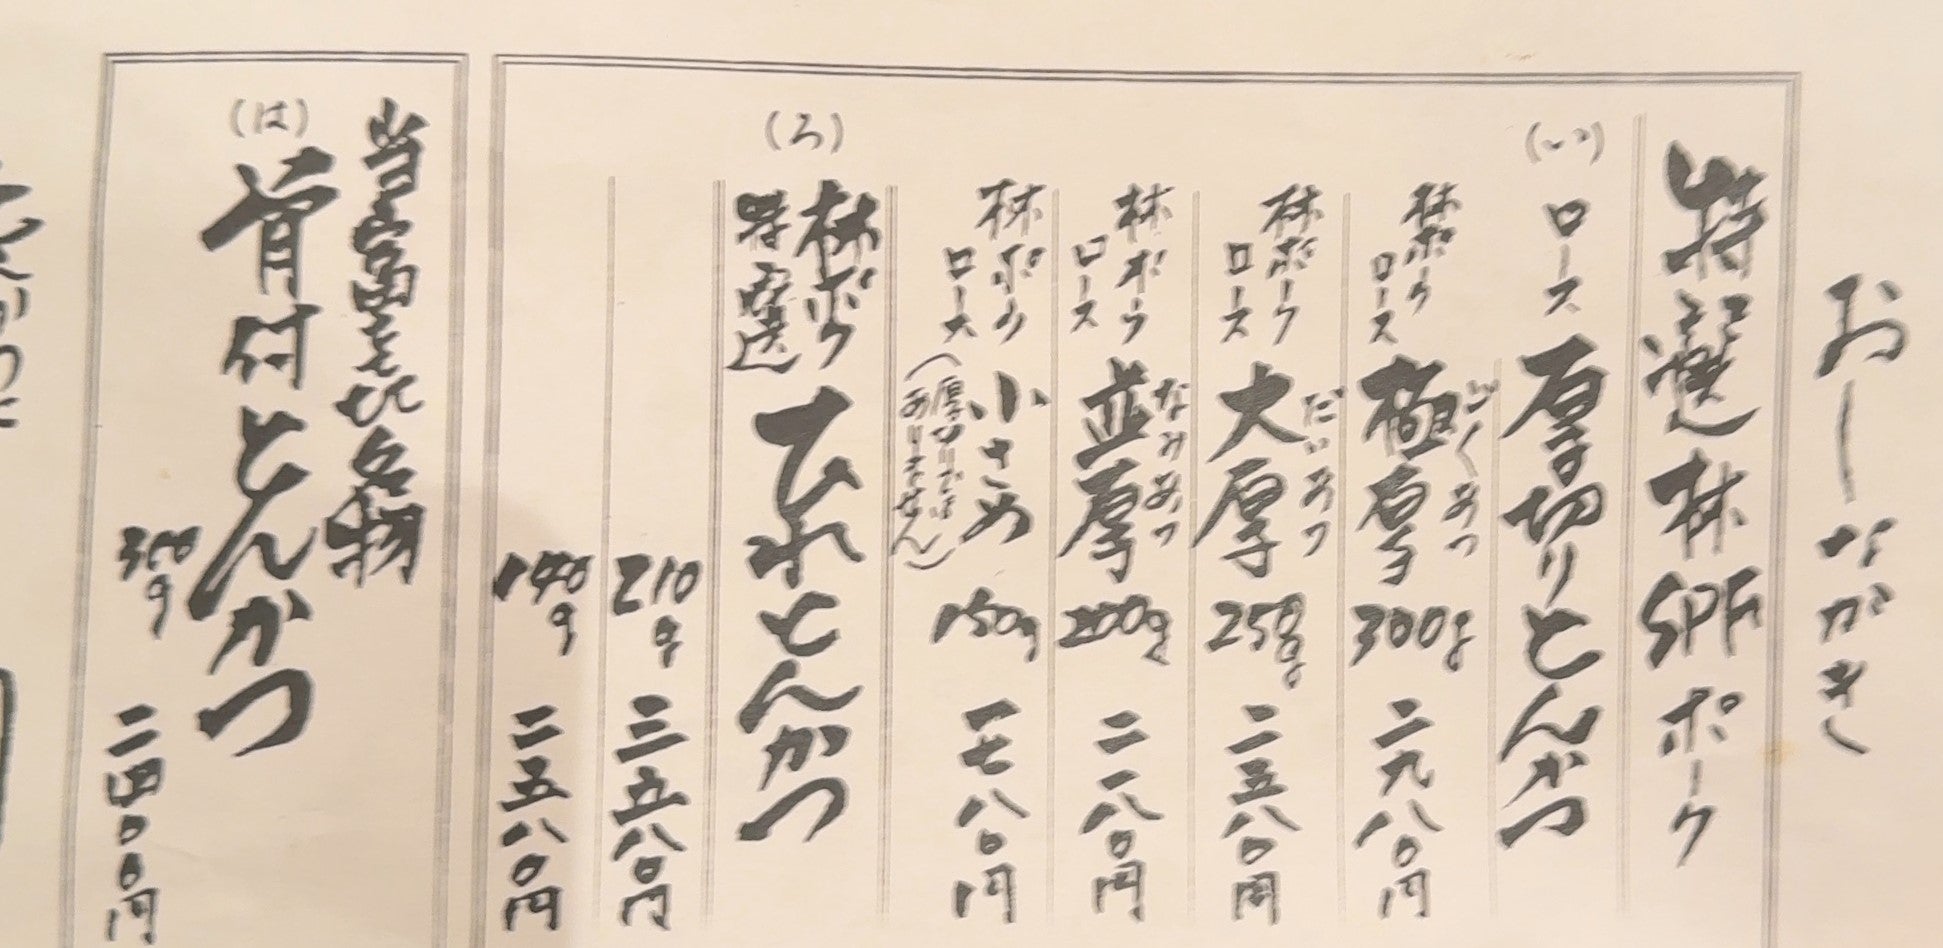 おしながき
特選林SPFポーク
(い) ロース 厚切りとんかつ
林ポーク ロース 極厚 ごくあつ 300g 二九八〇円
林ポーク ロース 大厚 だいあつ 250g 二五八〇円
林ポーク ロース 並厚 なみあつ 200g 二一八〇円
林ポーク ロース 小さめ 150g 一七八〇円
(厚切りではありません)
(ろ) 林ポーク 特選 ひれとんかつ
210g 三五八〇円
140g 二五八〇円
当富士比名物
(は) 骨付とんかつ
300g 二四〇〇円